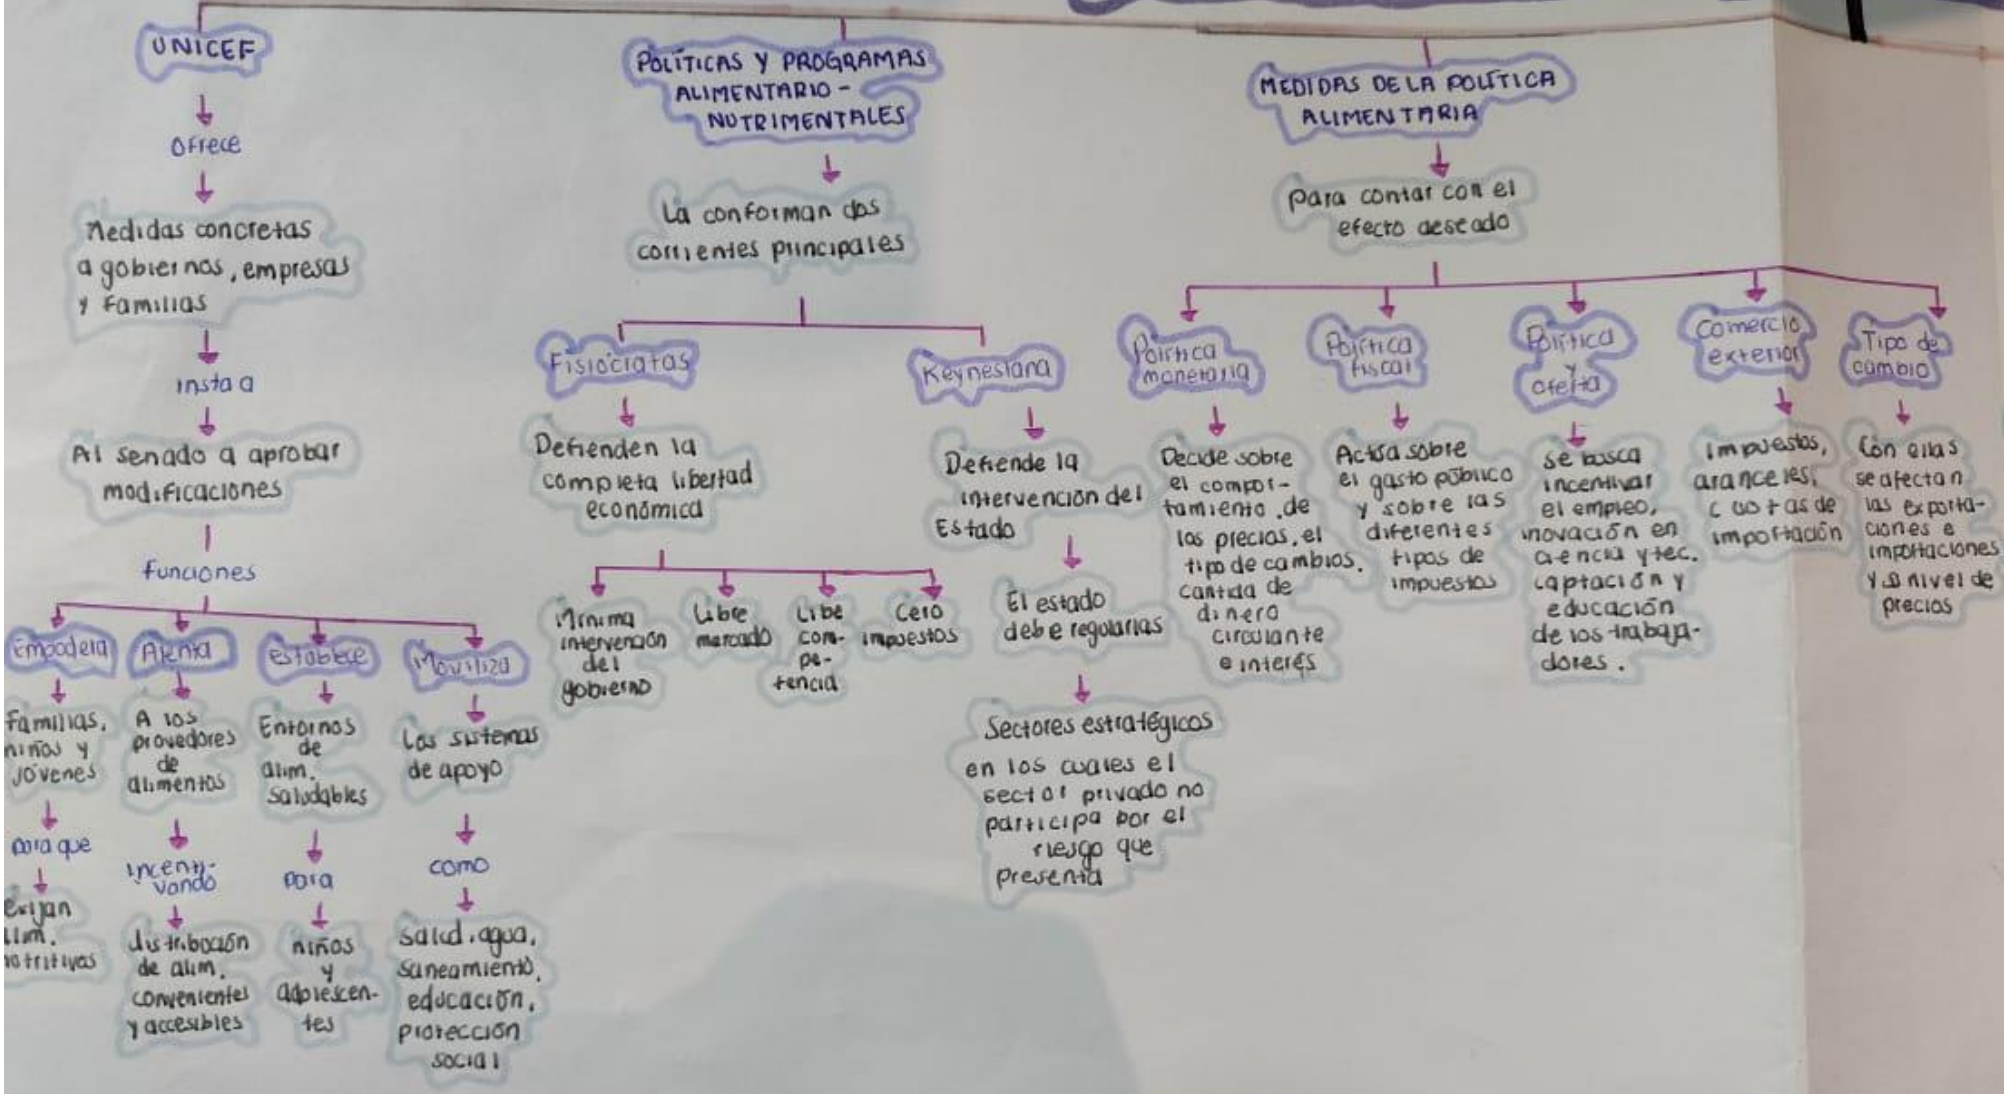 UNICEF
Ofrece
Medidas concretas
a gobiernos, empresas
y familias
insta a
Al senado a aprobar
modificaciones
funciones
Empodera
Familias,
niños y
jóvenes
para que
exijan
alim.
nutritivas
Alenta
A los
provedores
de
alimentos
incenti-
vando
distribución
de alim.
convenientes
y accesibles
establece
Entornos
de
alim.
saludables
para
niños
y
adolescen-
tes
Moviliza
Los sistemas
de apoyo
como
salud, agua,
saneamiento,
educación,
protección
social
POLÍTICAS Y PROGRAMAS
ALIMENTARIO -
NUTRIMENTALES
La conforman dos
corrientes principales
Fisiócratas
Defienden la
completa libertad
económica
Mínima
intervención
del
gobierno
Libre
mercado
Libe
com-
pe-
tencia
Cero
impuestos
Keynesiana
Defiende la
intervención del
Estado
El estado
debe regularlas
Sectores estratégicos
en los cuales el
sector privado no
participa por el
riesgo que
presenta
MEDIDAS DE LA POLÍTICA
ALIMENTARIA
Para contar con el
efecto deseado
Política
monetaria
Decide sobre
el compor-
tamiento de
los precios, el
tipo de cambios,
cantida de
dinero
circulante
e interés
Política
fiscal
Actúa sobre
el gasto público
y sobre las
diferentes
tipos de
impuestos
Política
y
oferta
se busca
incentivar
el empleo,
inovación en
ciencia y tec.
captación y
educación
de los trabaja-
dores.
Comercio
exterior
Impuestos,
aranceles,
cuotas de
importación
Tipo de
cambio
Con ellas
se afectan
las exporta-
ciones e
importaciones
y nivel de
precios